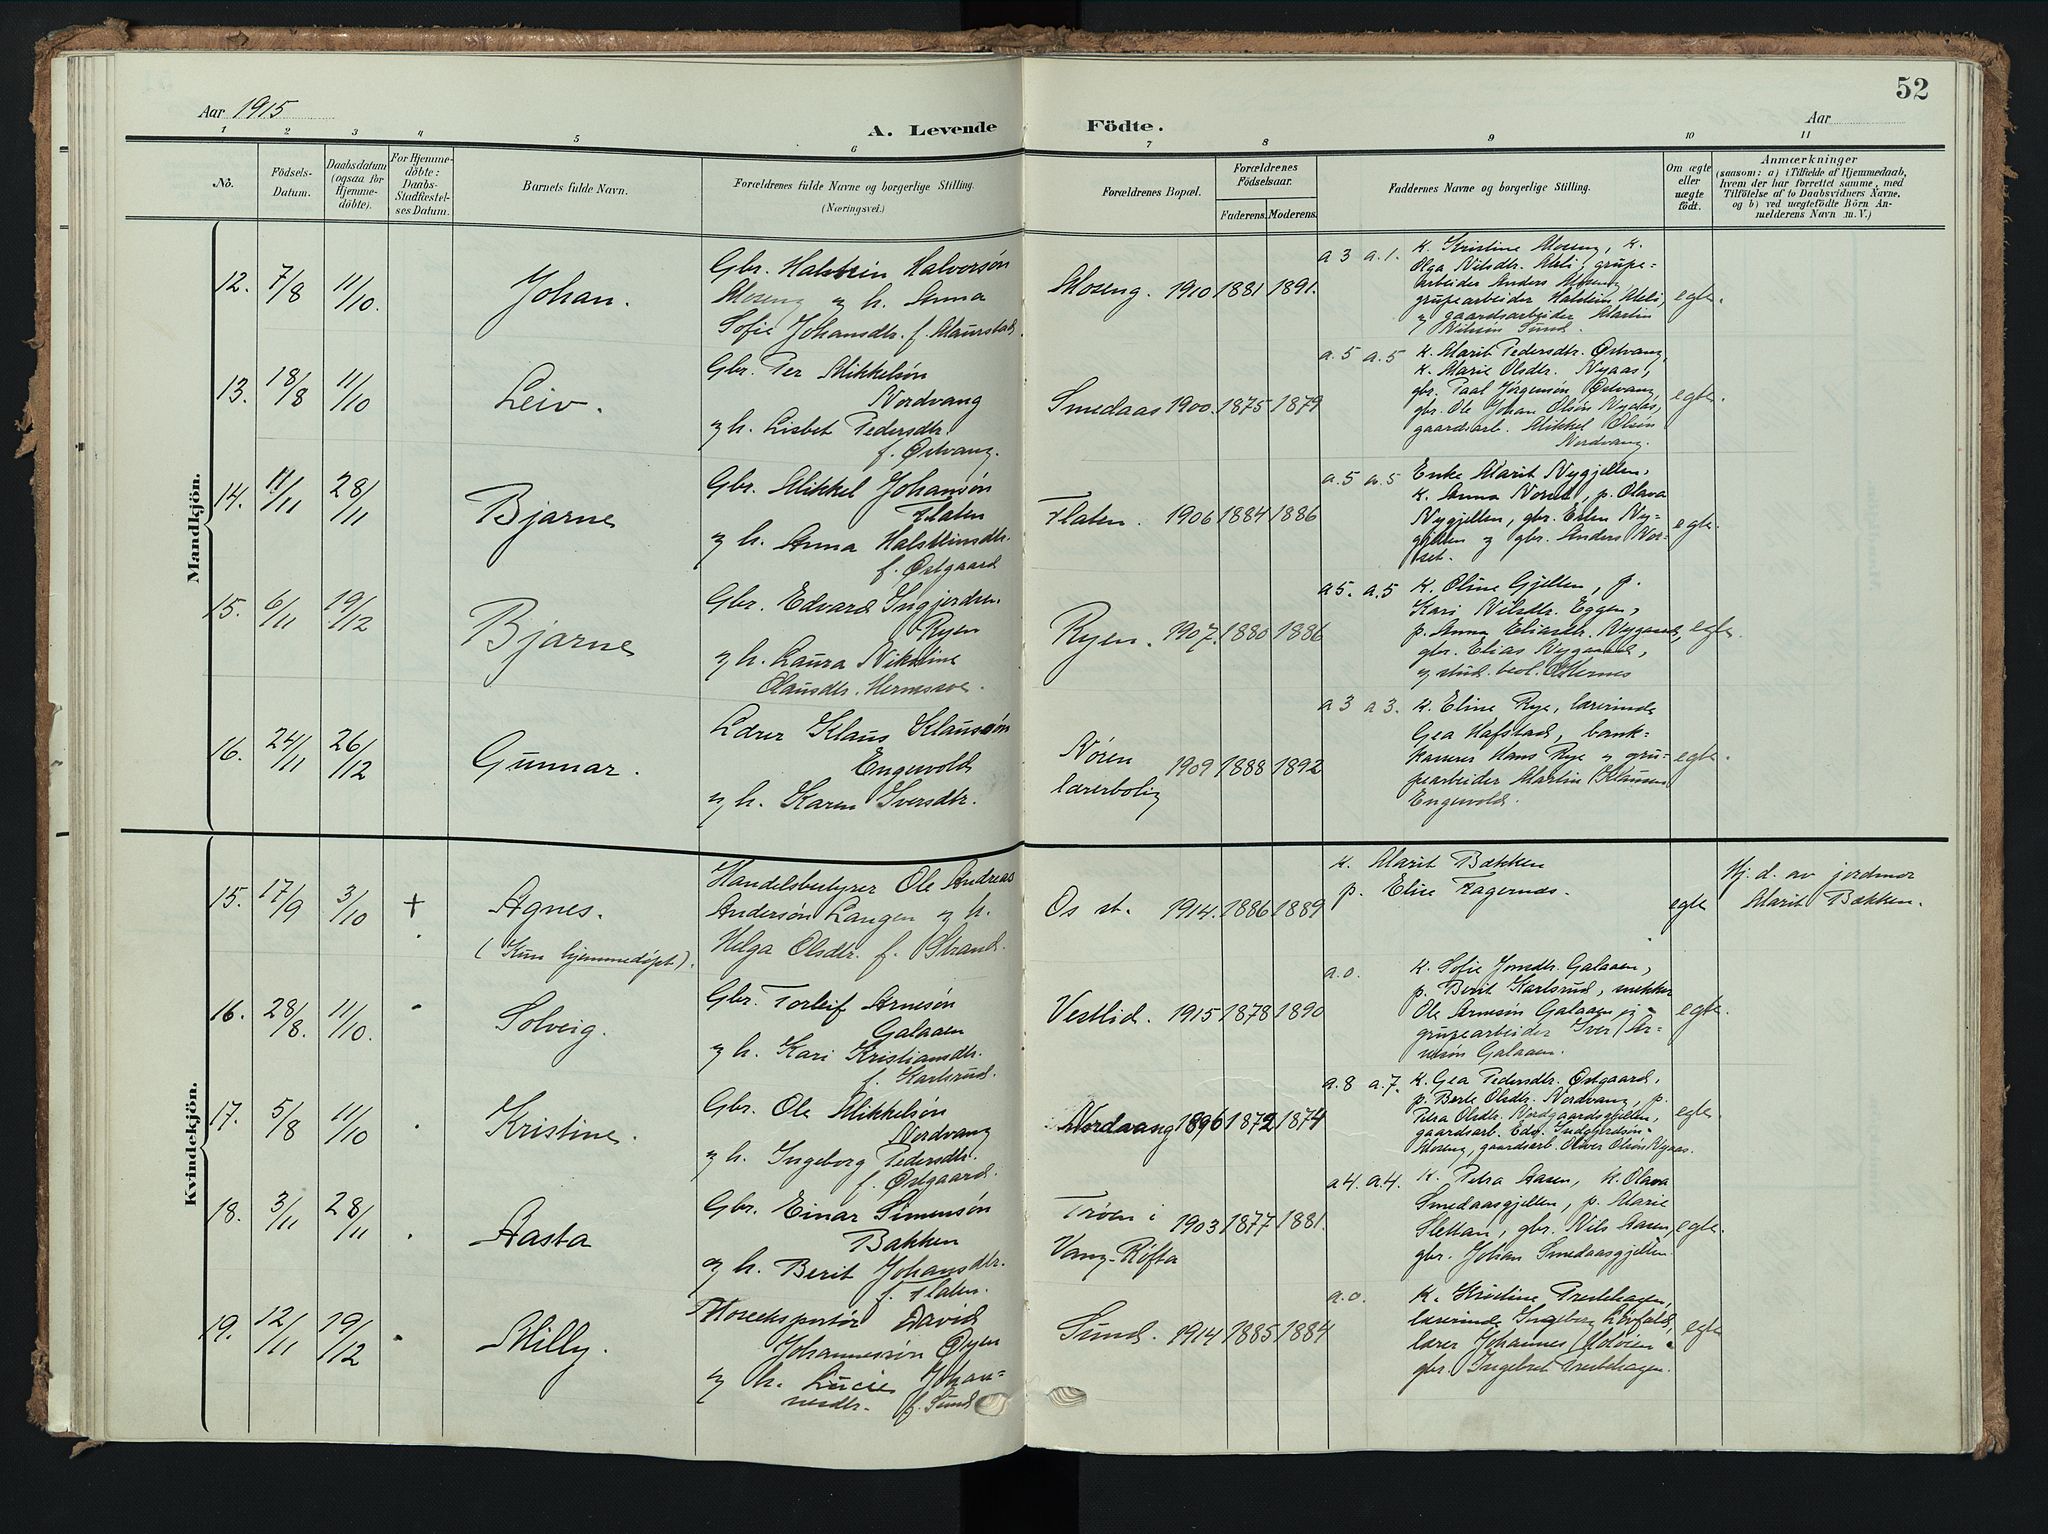 52
Aar 1915
Aar
1 2 3 4 5 6 7 8 9 10 11
A. Levende Födte.
No.
Födsels-
Datum.
Daabsdatum
(ogsaa for
Hjemme-
döbte).
For Hjemme-
döbte:
Daabs-
Stadfæstel-
ses Datum.
Barnets fulde Navn.
Forældrenes fulde Navne og borgerlige Stilling.
(Næringsvei.)
Forældrenes Bopæl.
Forældrenes
Födselsaar.
Faderens. Moderens.
Faddernes Navne og borgerlige Stilling.
Om ægte
eller
uægte
födt.
Anmærkninger
(saasom: a) i Tilfælde af Hjemmedaab,
hvem der har forrettet samme, med
Tilföielse af to Daabsvidners Navne,
og b) ved uægtefödte Börn An-
melderens Navn m. V.)
Mandkjön.
12. 7/8 11/10. Johan.
Gbr. Halstein Halvorsøn
Moseng og h. Anna
Sofie Johansdtr. f. Maurstad.
Moseng. 1910 1881 1891.
a 3 a.1. k. Kristine Moseng, k.
Olga Nilsdtr. Meli, grupe-
arbeider Anders Moseng
grupearbeider Halstein Meli,
og gaardsarbeider Martin
Nilsøn Sund.
egte.
13. 18/8 11/10 Leiv.
Gbr. Per Mikkelsøn
Nordvang
og h. Lisbet Pedersdtr.
f. Østvang.
Smedaas 1900. 1875 1879
a.5 a.5 k. Marit Pedersdtr. Østvang,
k. Marie Olsdtr. Nyaas,
gbr. Paal Jørgensøn Østvang,
gbr. Ole Johan Olsøn Nyaas,
gaardsarb. Mikkel Olsøn
Nordvang.
egte.
14. 11/11 28/11 Bjarne
Gbr. Mikkel Johansøn
Flaten
og h. Anna Halsteinsdtr.
f. Østgaard
Flaten. 1906 1884 1886
a.5 a.5 Enke Marit Nygjelten,
k. Anna Norset, p. Olava
Nygjelten, gbr. Esten Ny-
gjelten og gbr. Anders Nor-
set.
egte.
15. 6/11 19/12 Bjarne
Gbr. Edvard Ingjerdsn.
Ryen
og h. Laura Nikoline
Olausdtr. Hermsmoe.
Ryen. 1907. 1880 1886
a 5. a.5 k. Oline Gjelten, p.
Kari Nilsdtr. Eggen,
p. Anna Eliasdtr. Nygaard,
gbr. Elias Nygaard,
og stud. teol. O. Hernes
egte.
16. 24/11 26/12 Gunnar.
Lærer Klaus Klausøn
Engevold
og h. Karen Iversdtr.
Nøren
lærerbolig 1909 1888 1892
a 3 a 3. k. Eline Rye, lærerinde
Gea Hafstad, bank-
kasserer Hans Rye og gru-
pearbeider Martin Klausen
Engevold.
egte.
Kvindekjön.
15. 17/9 3/10 + Agnes.
(Kun hjemmedøpt).
Handelsbestyrer Ole Andreas
Andersøn Langen og h.
Helga Olsdtr. f. Strand.
Os st. 1914. 1886 1889
k. Marit Bækken
p. Elise Fagernæs.
egte
Hj. d. av jordmor
Marit Bækken.
16. 28/8. 11/10. Solveig.
Gbr. Torleif Arnesøn
Galaaen
og h. Kari Kristiansdtr.
f. Karlsrud.
Vestlid. 1915 1878 1890
a.0. k. Sofie Jonsdtr. Galaaen,
p. Berit Karlsrud, snekker
Ole Arnesøn Galaaen og
grupearbeider Iver Ar-
nesøn Galaaen.
egte.
17. 5/8 11/10 Kristine.
Gbr. Ole Mikkelsøn
Nordvang
og h. Ingeborg Pedersdtr.
f. Østgaard.
Nordvang 1896 1872 1874
a.8 a.7. k. Gea Pedersdtr. Østgaard,
p. Berte Olsdtr. Nordvang, p.
Petra Olsdtr. Nordgaardsgjelten,
gaardsarb. Edv. Indgjerdsøn
Moseng, gaardsarb. Oliver Olsøn Nyaas.
egte.
18. 3/11 28/11 Aasta
Gbr. Einar Simensøn
Bakken
og h. Berit Johansdtr.
f. Flaten.
Trøen i
Vang-Røfta 1903 1877 1881.
a 4. a.4. k. Petra Aasen, k. Olava
Smedaasgjelten, p. Marie
Slettan, gbr. Nils Aasen,
gbr. Johan Smedaasgjelten.
egte.
19. 12/11 19/12 Milly.
David
Johannessøn Øyen
og h. Lucie Johan-
nesdtr. f. Sund
Sund. 1914 1885 1884
a.0. k. Kristine Trertehagen,
lærerinde Ingeborg Løvfald,
lærer Johannes
gbr. Ingebret Trertehagen.
egte